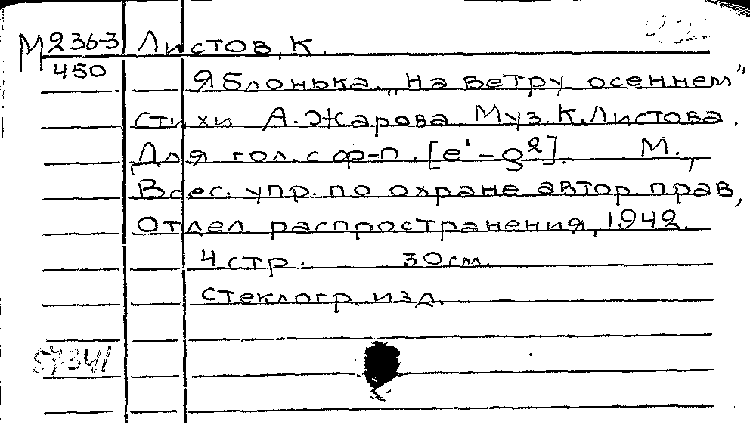 М 236-3/450 Листов, К.
Яблонька. „На ветру осеннем"
стихи А. Жарова. Муз. К. Листова.
Для гол. с ф-п. [e¹-g²]. М.,
Всес. упр. по охране автор. прав,
Отдел распространения, 1942.
4 стр. 30 см.
стеклогр. изд.
57341